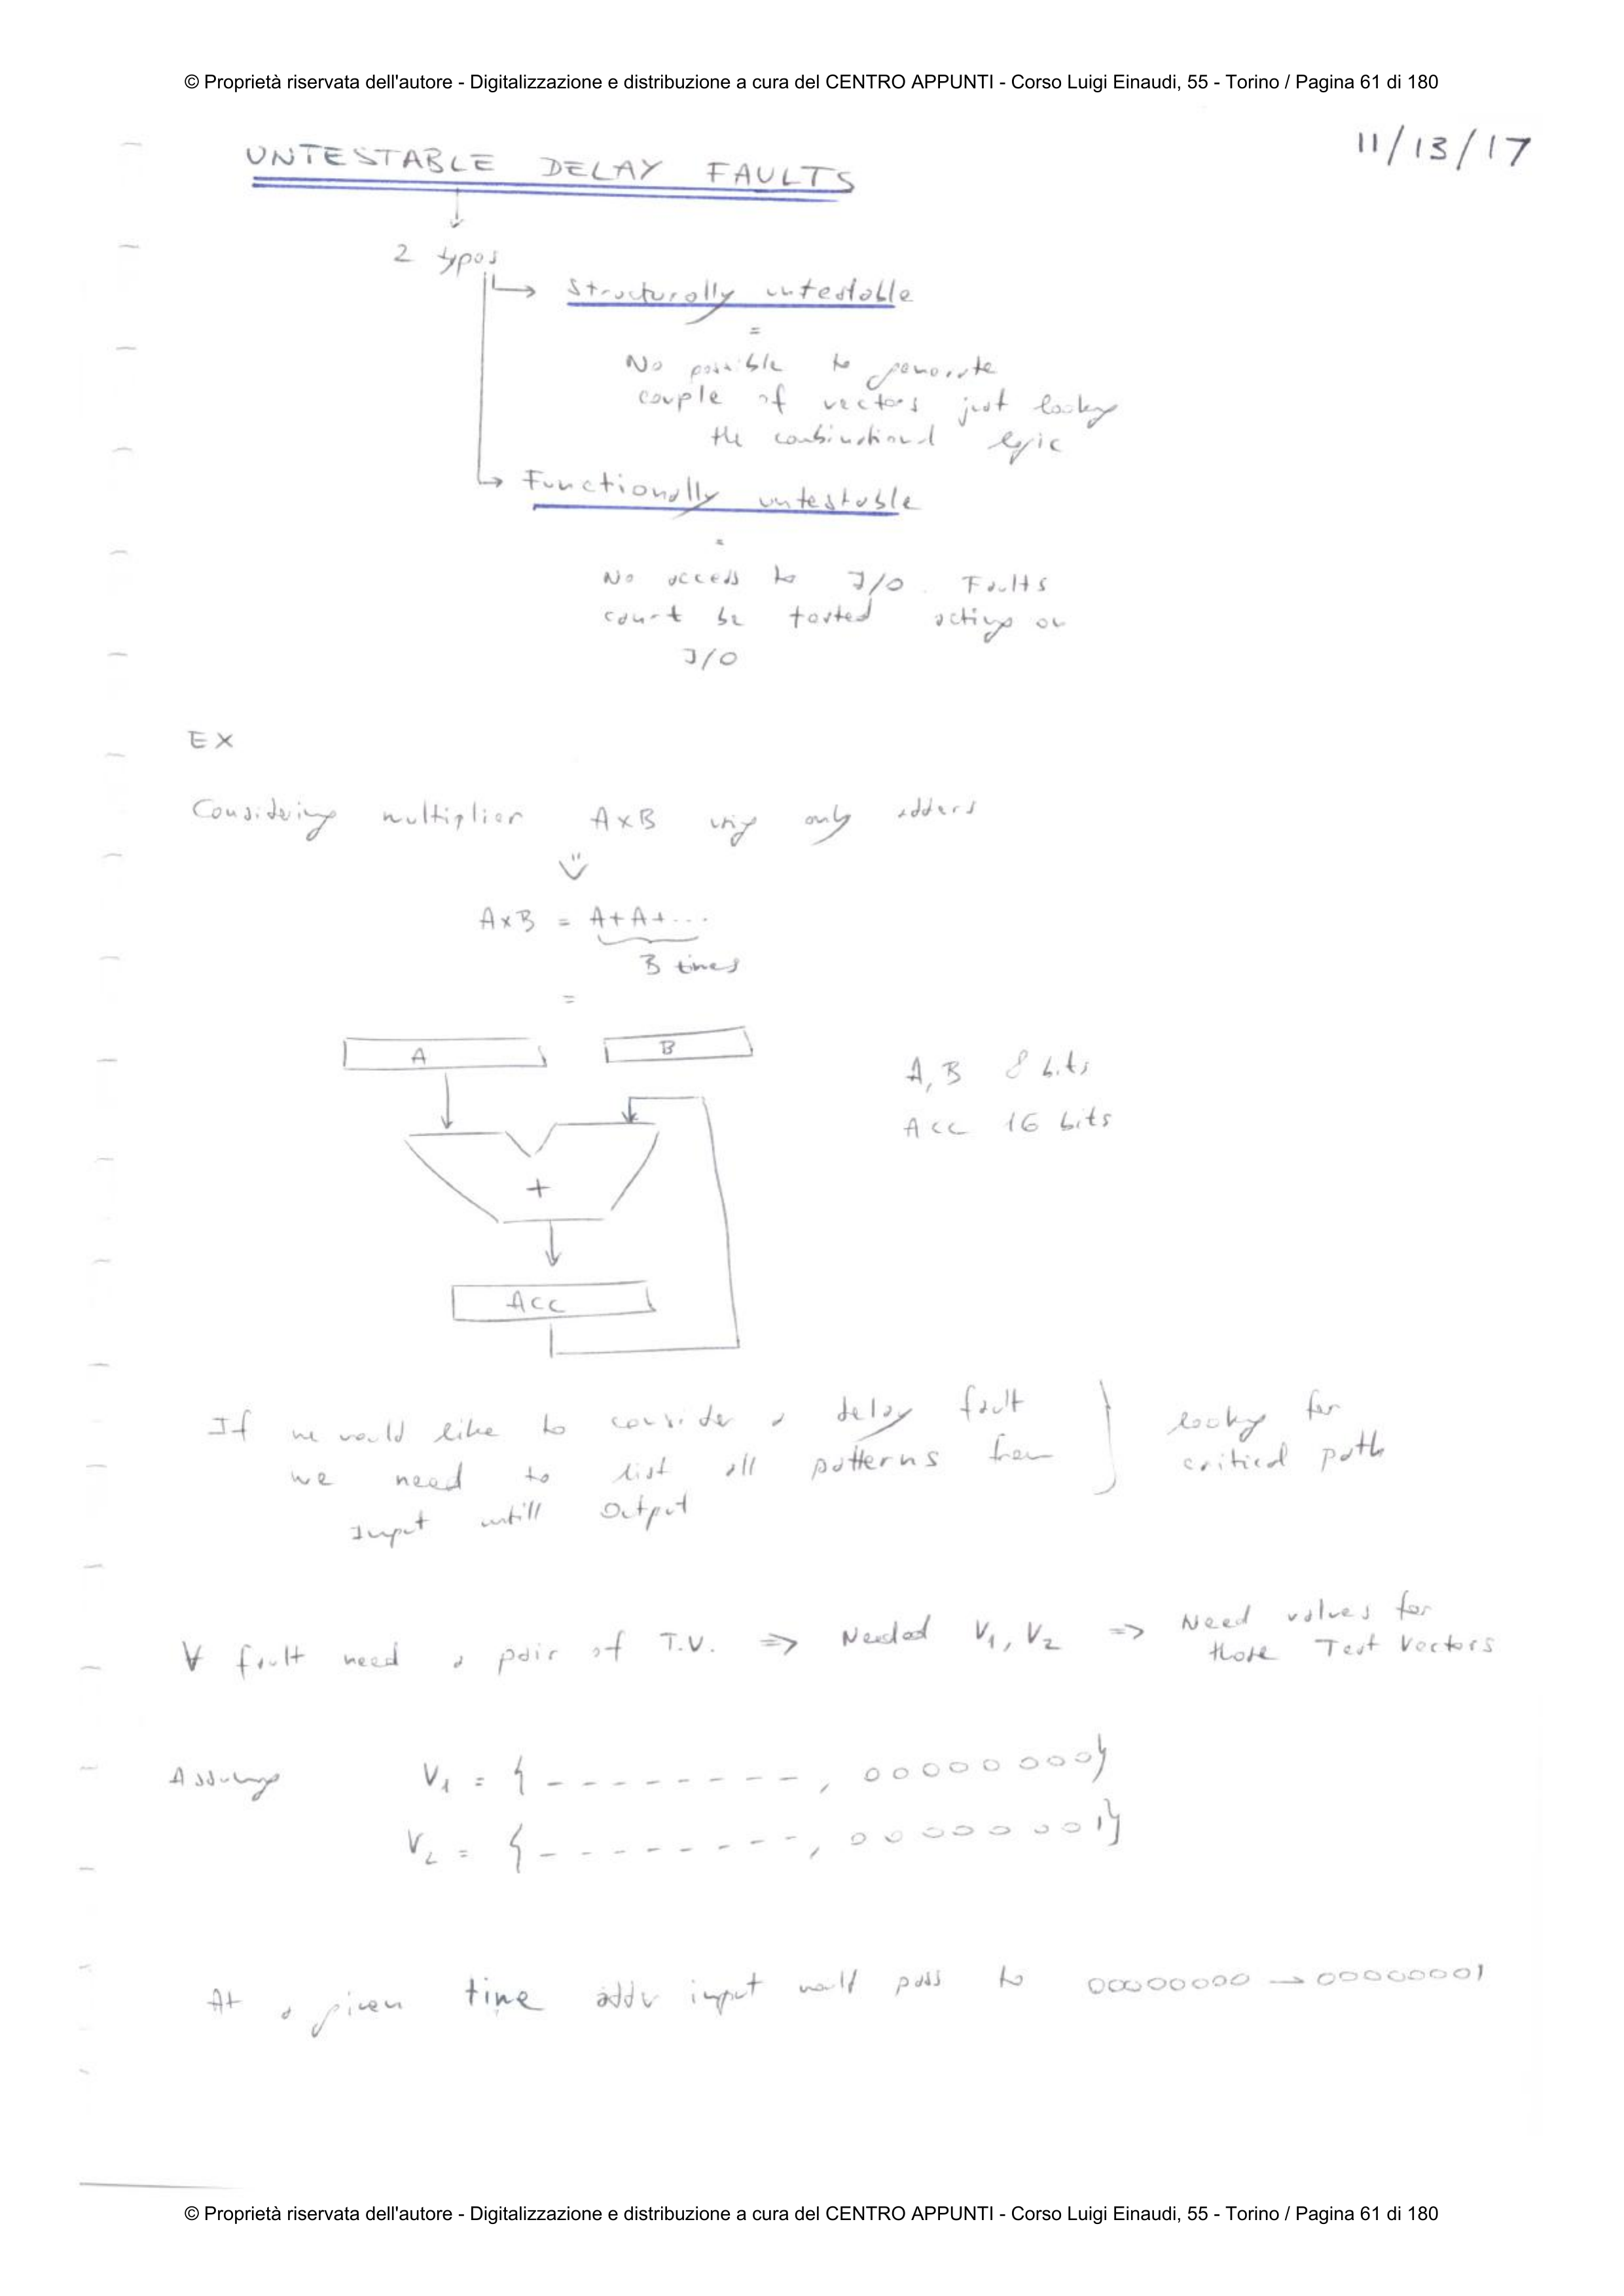 © Proprietà riservata dell'autore - Digitalizzazione e distribuzione a cura del CENTRO APPUNTI - Corso Luigi Einaudi, 55 - Torino / Pagina 61 di 180
11/13/17
UNTESTABLE DELAY FAULTS
2 types
Structurally untestable
=
No possible to generate
couple of vectors just looking
the combinational logic
Functionally untestable
=
No access to I/O. Faults
can't be tested acting on
I/O
EX
Considering multiplier A×B using only adders
A×B = A+A+...
B times
=
A B
A, B 8 bits
Acc 16 bits
+
Acc
If we would like to consider a delay fault
we need to list all patterns from
Input untill Output
looking for
critical path
∀ fault need a pair of T.V. ⇒ Needed V1, V2 ⇒ Need values for
those Test Vectors
Assuming V1 = { - - - - - - - - , 00000000}
V2 = { - - - - - - - - , 00000001}
At a given time adder input would pass to 00000000 → 00000001
© Proprietà riservata dell'autore - Digitalizzazione e distribuzione a cura del CENTRO APPUNTI - Corso Luigi Einaudi, 55 - Torino / Pagina 61 di 180